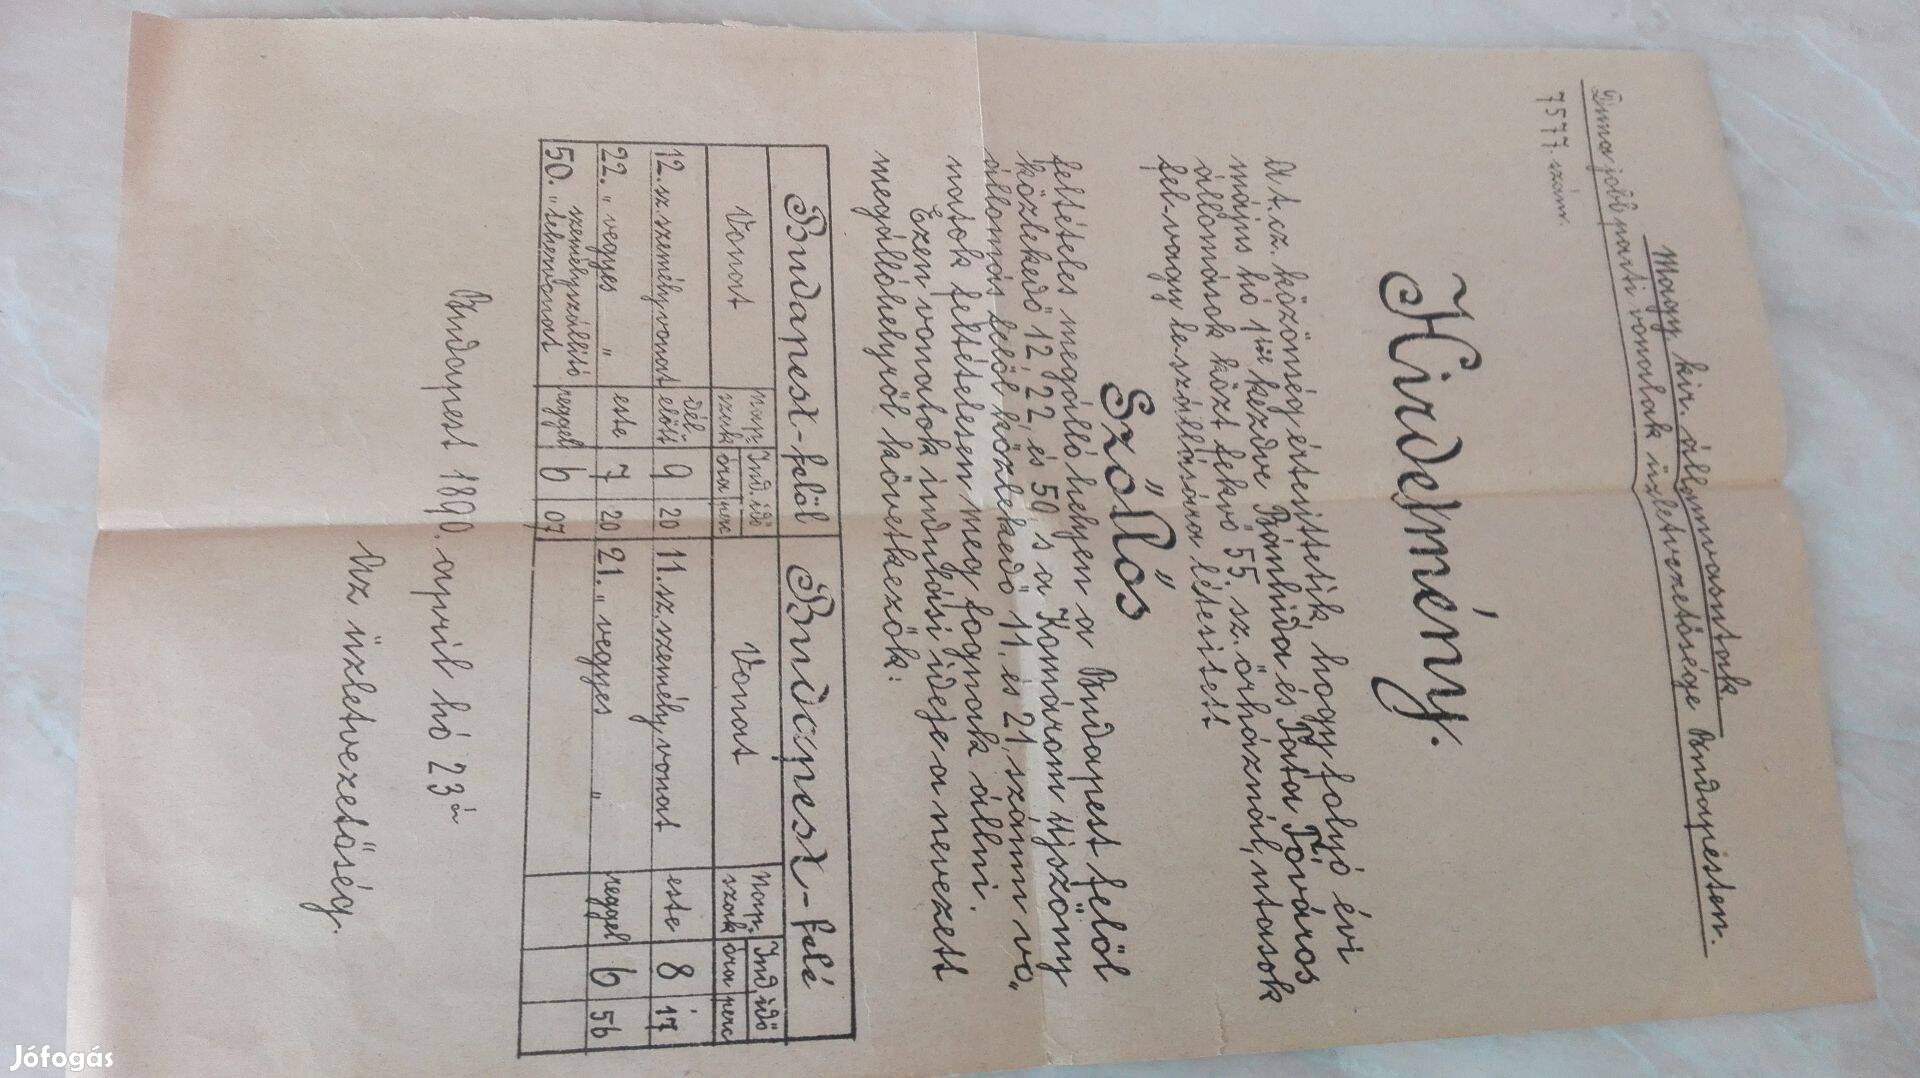 Magy. kir. államvasutak.
Duna jobbparti vonalak üzletvezetősége Budapesten.
7577. szám.
Hirdetmény.
A t. cz. közönség értesittetik, hogy folyó évi
május hó 1től kezdve Bánhida és Tata Tóváros
állomások közt fekvő 55. sz. őrháznál, utasok
fel- vagy le-szállására létesitett
Szőllős
feltételes megálló helyen a Budapest felől
közlekedő 12, 22, és 50 s a Komárom ujszöny
állomás felöl közlekedő 11, és 21, számu vo„
natok feltételesen meg fognak állni.
Ezen vonatok indulási ideje a nevezett
megállóhelyről következők:
Budapest-felöl Budapest-felé
Vonat Nap- szak Ind. idő óra perc Vonat Nap- szak Ind. idő óra perc
12. sz. személyvonat dél- előtt 9 20 11. sz. személyvonat este 8 17
22. „ vegyes „ este 7 20 21. „ vegyes „ reggel 6 56
50. „ személyszállitó tehervonat reggel 6 07
Budapest 1890. april hó 23án
Az üzletvezetőség.
Jófogás